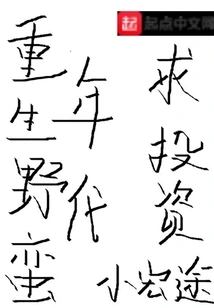 起 起点中文网
重生野蛮
年代
求投资
小宏途